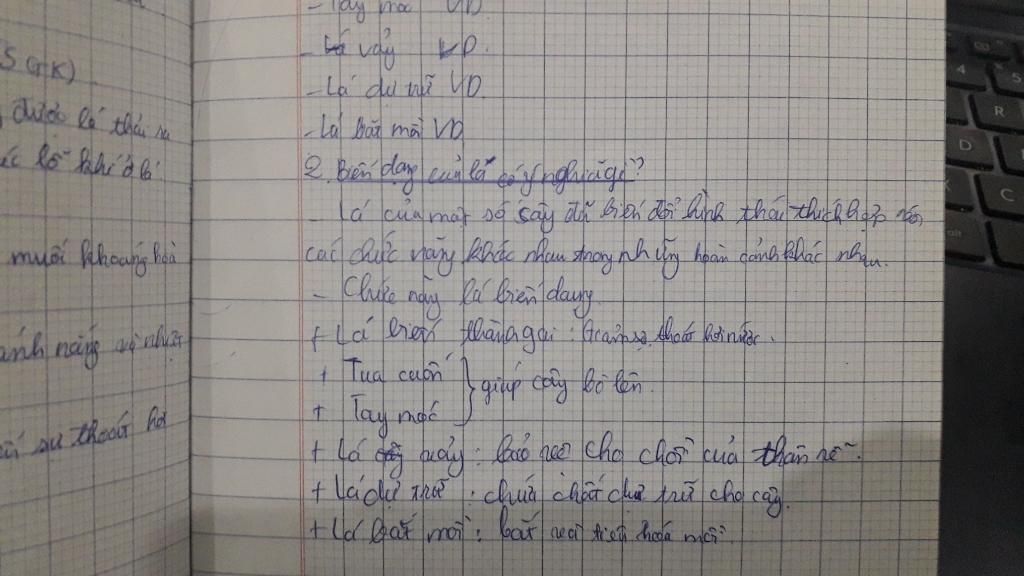 - Tay móc VD
- Lá vảy VD.
- Lá dự trữ VD.
- Lá bắt mồi VD
2. Biến dạng của lá có ý nghĩa gì?
- Lá của một số cây đã biến đổi hình thái thích hợp với
các chức năng khác nhau trong những hoàn cảnh khác nhau.
- Chức năng lá biến dạng
+ Lá biến thành gai: Giảm sự thoát hơi nước.
+ Tua cuốn
giúp cây bò lên.
+ Tay móc
+ Lá vảy: bảo vệ cho chồi của thân rễ.
+ Lá dự trữ: chứa chất dự trữ cho cây.
+ Lá bắt mồi: bắt và tiêu hoá mồi.
SGK)
được lá thải ra
lỗ khí ở lá
muối khoáng hoà
ánh nắng và nhiệt
sự thoát hơi